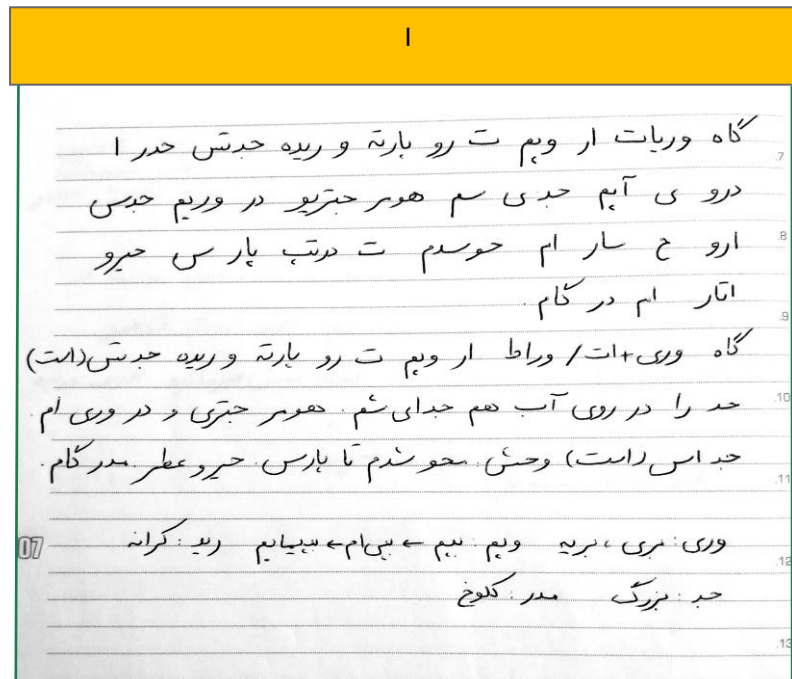 ا
گاه وریات ار ویم ت رو بارته و ریده حدتس حدر ا
درو ی آیم حدی سم هوسر حتریو در وریم حدس
ارو خ سار ام حوسدم ت درتب پارس حیرو
اتار ام در کام.
گاه وری+ات/ وراط ار ویم ت رو بارته و ریده حد تس(است)
حد را در روی آب هم حدای شم. هوسر حتری و در وری ام.
حد اس (است) وحش. محو شدم تا پارس. حیر و عطر مدر کام.
وری: بری، بریه ویم: بیم ← بی ام ← بیبیابم رید: کرانه
حد: بزرگ مدر: کلوخ
07